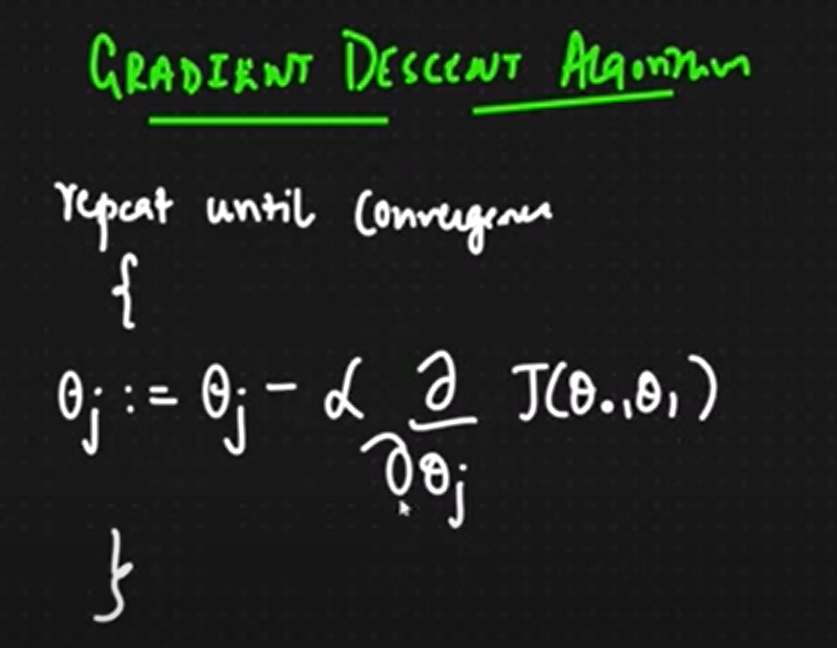 GRADIENT DESCENT Algorithm
repeat until convergence
{
θj := θj - α ∂/∂θj J(θ0, θ1)
}